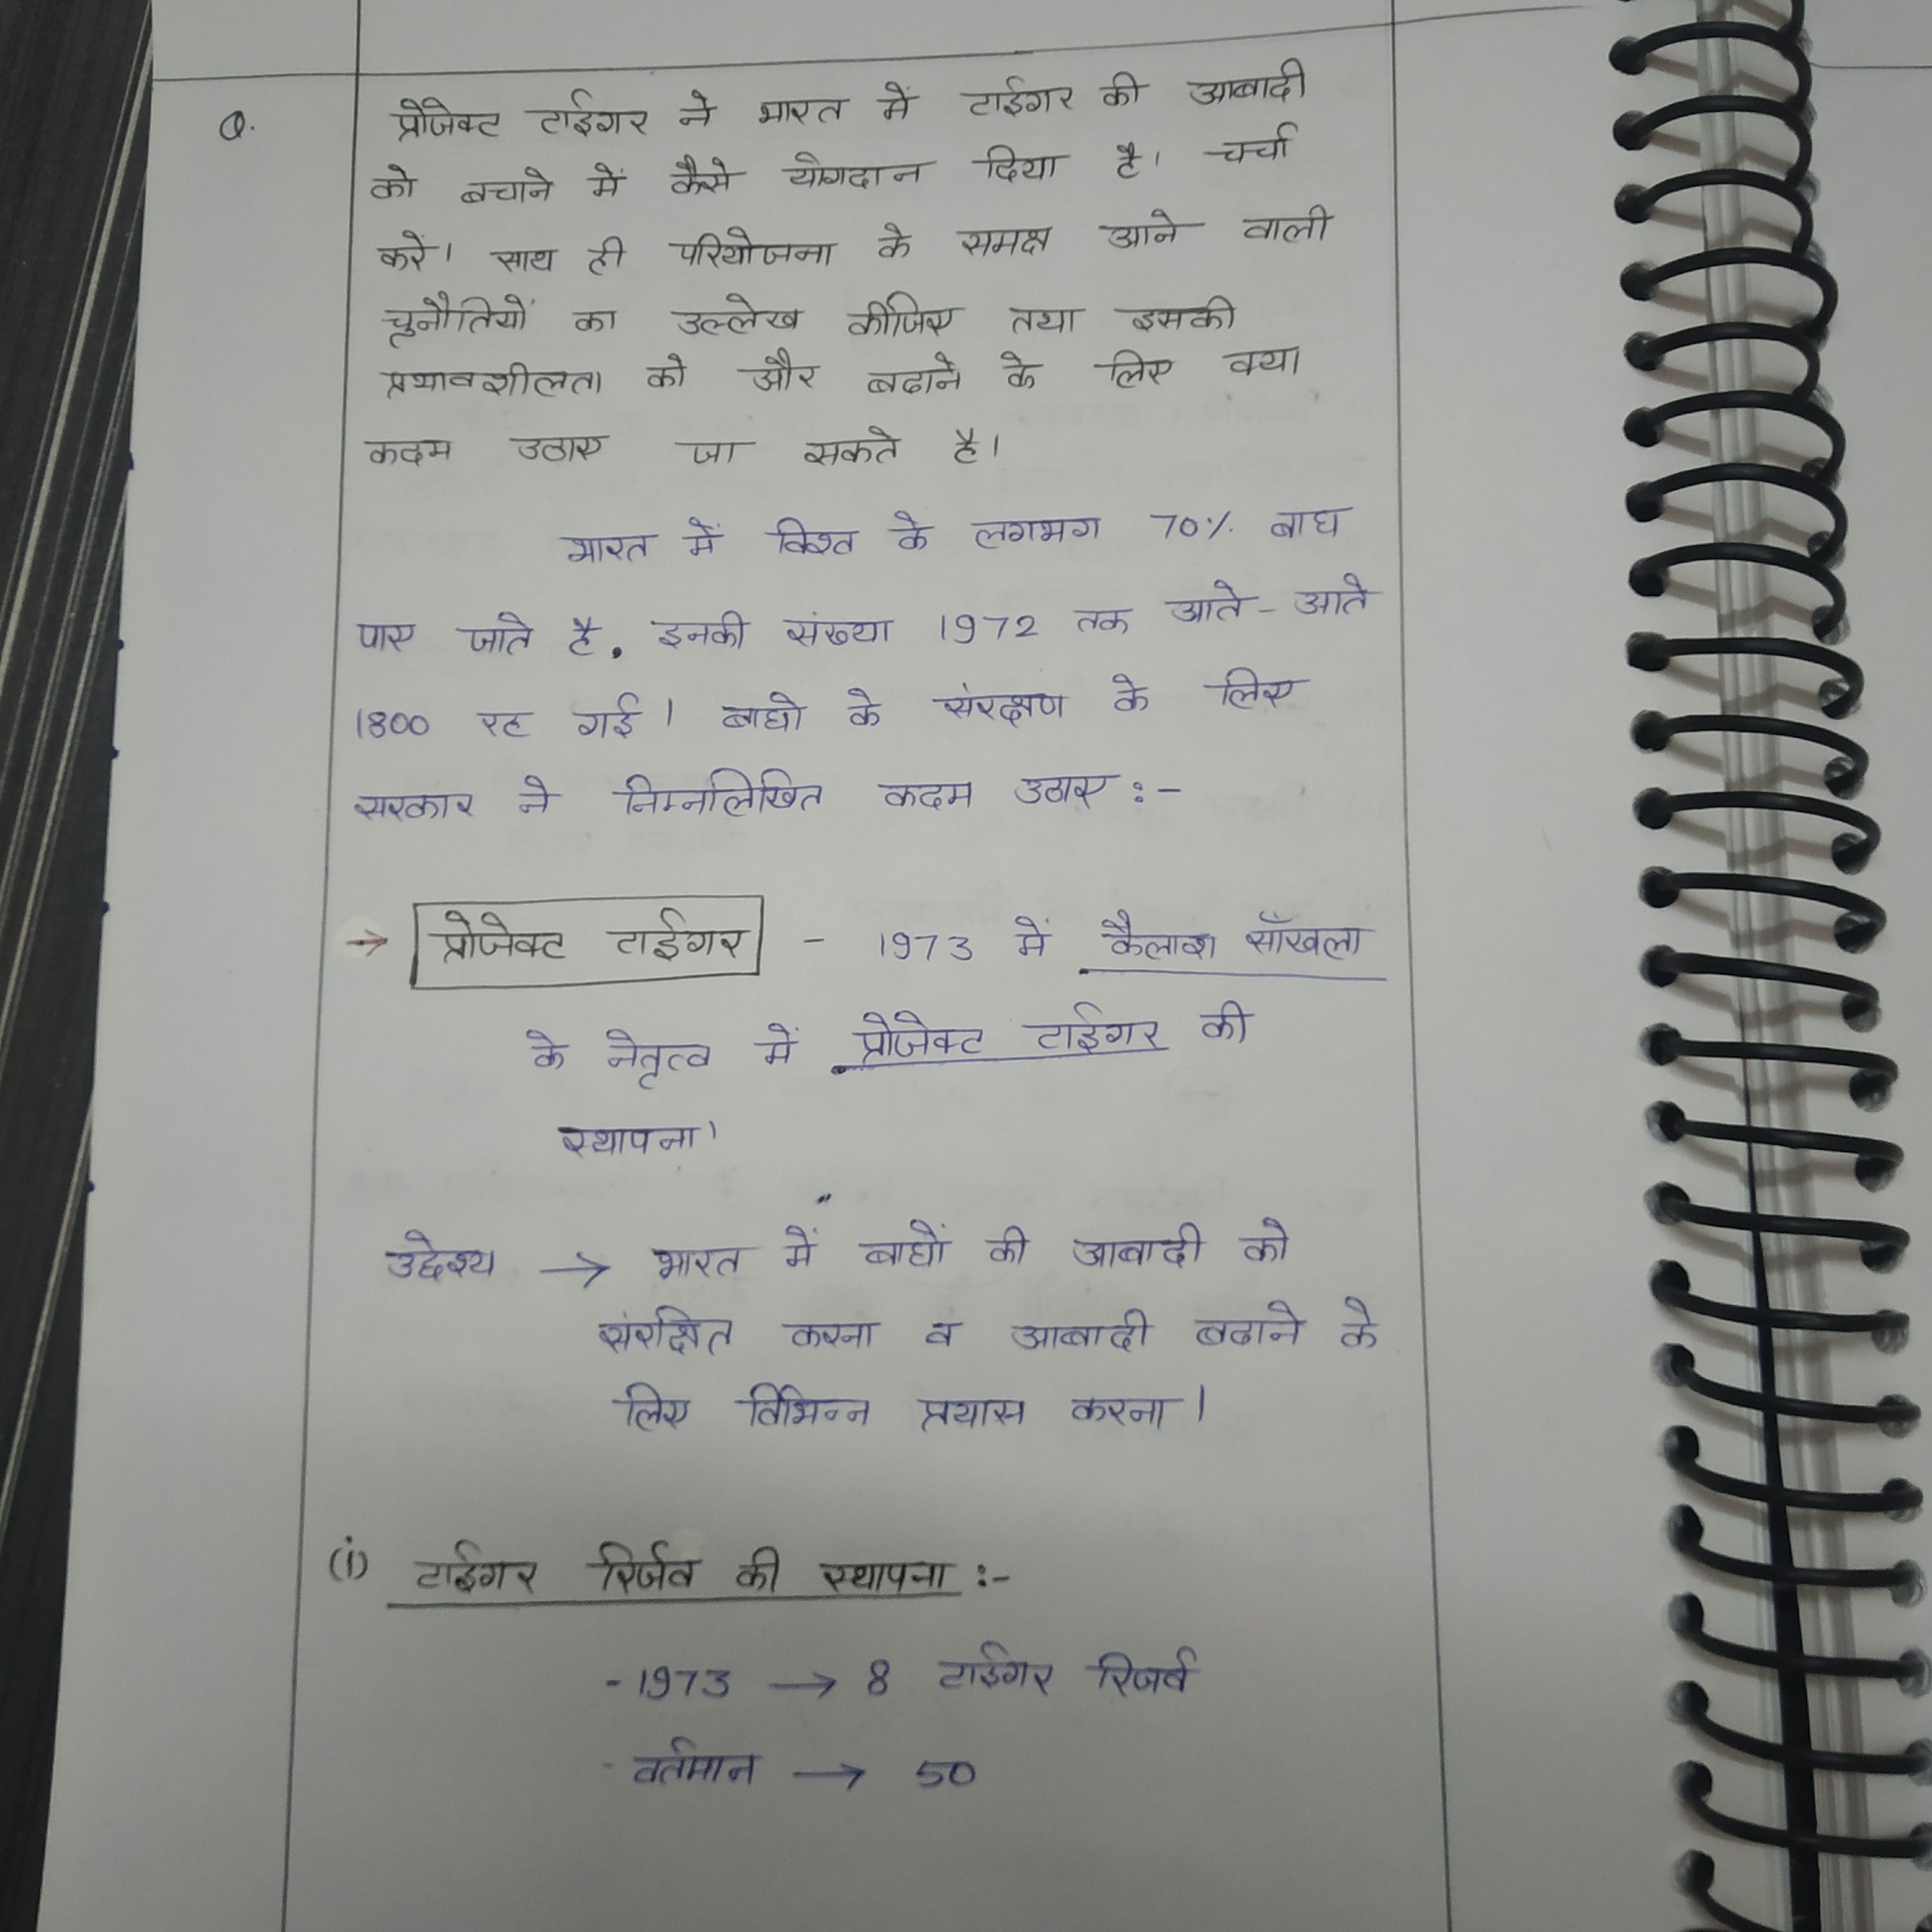 Q. प्रोजेक्ट टाईगर ने भारत में टाईगर की आबादी
को बचाने में कैसे योगदान दिया है। चर्चा
करें। साथ ही परियोजना के समक्ष आने वाली
चुनौतियों का उल्लेख कीजिए तथा इसकी
प्रभावशीलता को और बढाने के लिए क्या
कदम उठाए जा सकते है।
भारत में विश्व के लगभग 70% बाघ
पाए जाते है. इनकी संख्या 1972 तक आते-आते
1800 रह गई। बाघो के संरक्षण के लिए
सरकार ने निम्नलिखित कदम उठाए :-
→ प्रोजेक्ट टाईगर - 1973 में कैलाश साँखला
के नेतृत्व में प्रोजेक्ट टाईगर की
स्थापना।
उद्देश्य → भारत में बाघों की आबादी को
संरक्षित करना व आबादी बढाने के
लिए विभिन्न प्रयास करना।
(i) टाईगर रिर्जव की स्थापना :-
- 1973 → 8 टाईगर रिजर्व
- वर्तमान → 50